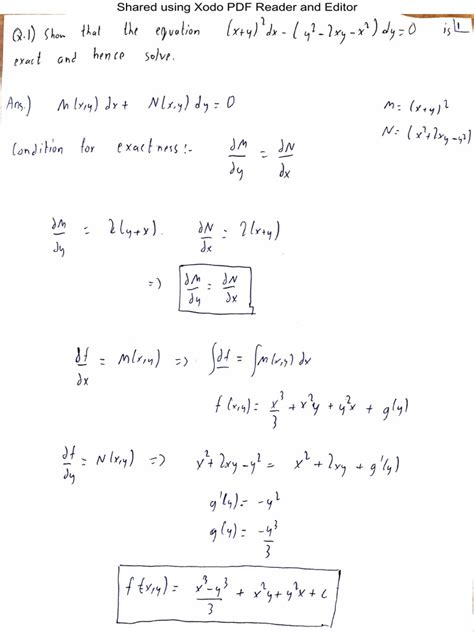 Shared using Xodo PDF Reader and Editor
Q.1) Show that the equation (x+y)²dx - (y²-2xy-x²)dy=0 is
exact and hence solve.
Ans.) M(x,y) dx + N(x,y) dy = 0
M = (x+y)²
N = (x²+2xy-y²)
Condition for exactness:- ∂M/∂y = ∂N/∂x
∂M/∂y = 2(y+x). ∂N/∂x = 2(x+y)
=> ∂M/∂y = ∂N/∂x
∂f/∂x = M(x,y) => ∫df = ∫M(x,y) dx
f(x,y) = x³/3 + x²y + y²x + g(y)
∂f/∂y = N(x,y) => x²+2xy-y² = x²+2xy+g'(y)
g'(y) = -y²
g(y) = -y³/3
f(x,y) = x³-y³/3 + x²y + y²x + c